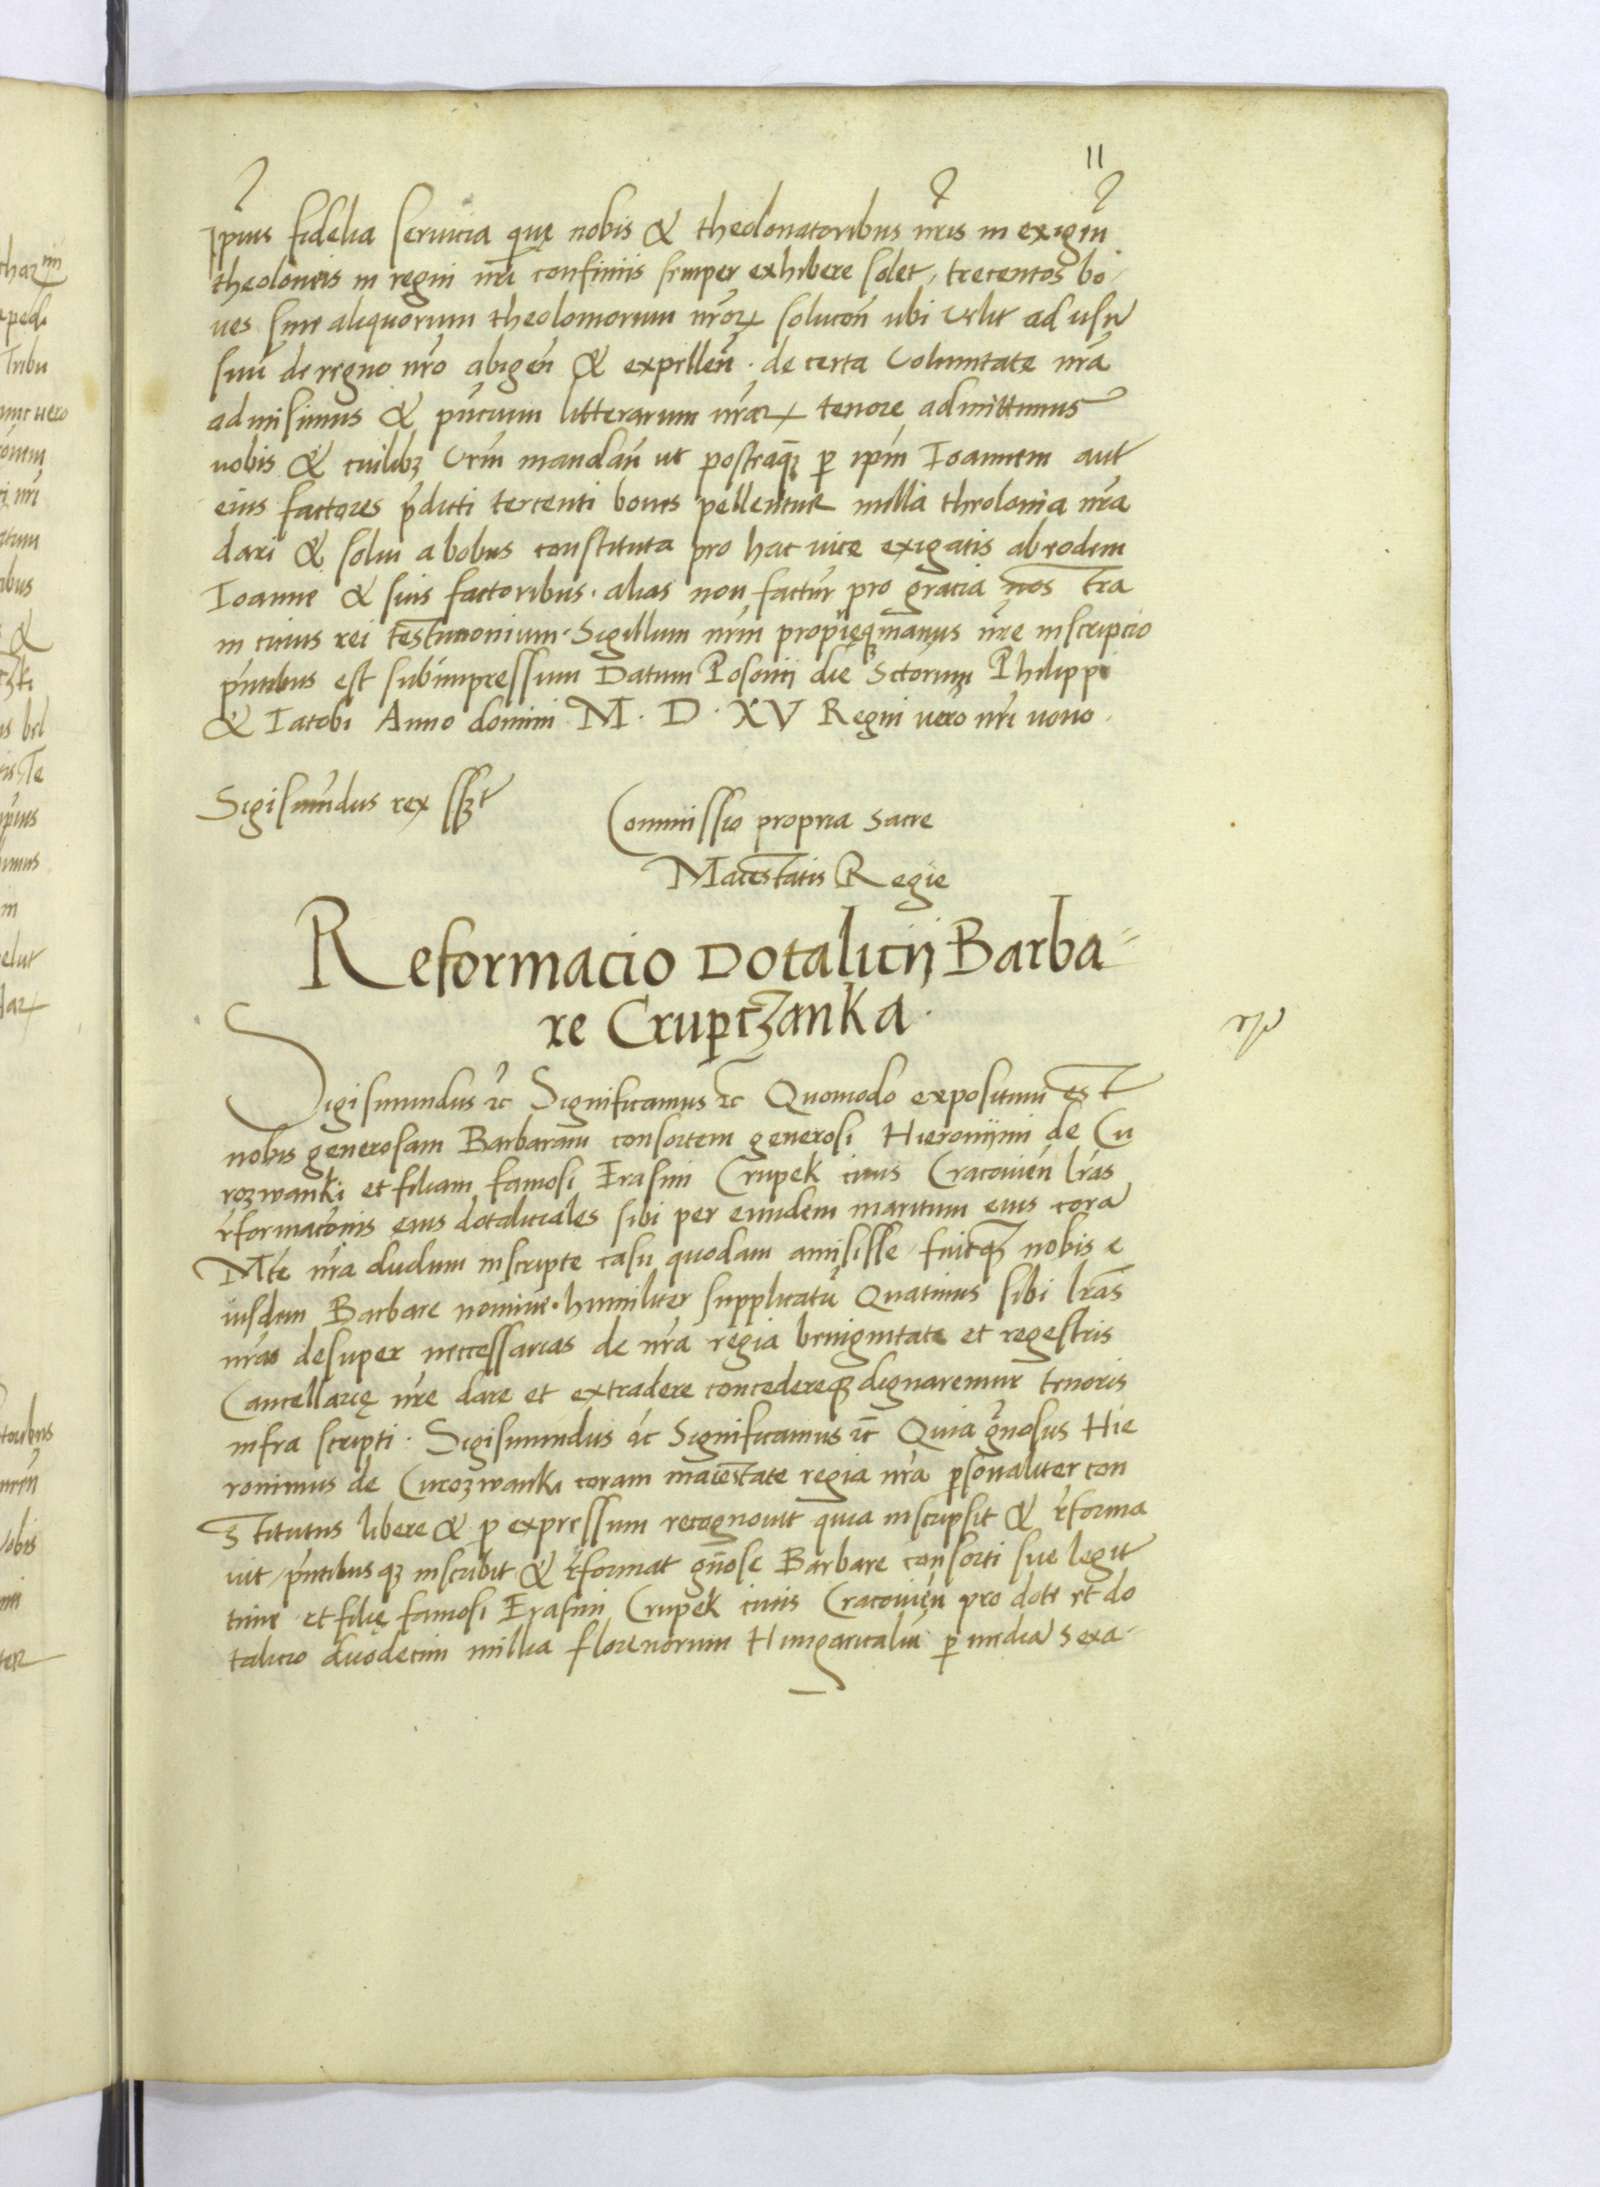 11
Ipius fidelia seruicia quę nobis & theolonatoribus nr̃is in exigen̄
theoloneis in regni nr̃i confiniis semper exhibere solet, trecentos bo/
ues sine aliquorum theoloniorum nr̃oꝝ soluco͠n ubi velit ad usū
suū de regno nr̃o abigen̄ & expellen̄. de certa voluntate nr̃a
admisimus & pn̄cium litterarum nr̃aꝝ tenore admittimus
uobis & cuilibꝫ vr̃m mandan̄ ut postꝗ̄ꝫ ꝑ ip̄m Ioannem aut
eius factores p̄dicti tercenti boues pellentur nulla theolonia nr̃a
dari & solui a bobus constituta pro hac uice exigatis ab eodem
Ioanne & suis factoribus. alias non factur̄ pro gracia nostra
in cuius rei testimonium. Sigillum nr̃m propięqꝫ manus nr̃e inscripcio
pn̄tibus est subimpressum Datum Posonii die Sctorum Philippi
& Iacobi Anno domini M. D. XV Regni vero nr̃i nono.
Sigismundus rex sszt
Commissio propria sacre
Maiestatis Regie
Reformacio Dotalicij Barba-
re Crupczanka.
Sigismundus ꝛc̄ Significamus ꝛc̄ Quomodo expositum est
nobis generosam Barbaram consortem generosi Hieronijmi de Cu
rozwanki et filiam famosi Erasmi Crupek ciuis Cracouien̄ lr̃as
r̄formac̄onis eius dotaliciales sibi per eundem maritum eius corā
Mt̄e nr̃a dudum inscripte casu quodam amisisse, fuitqꝫ nobis e
iusdem Barbare nomine. humiliter supplicatū Quatinus sibi lr̃as
nr̃as desuper neccessarias de nr̃a regia benignitate et regestris
Cancellarię nr̃e dare et extradere concedereqꝫ dignaremur tenoris
infra scripti. Sigismundus ꝛc̄ Significamus ꝛc̄ Quia gn̄osus Hie
ronimus de Curozwanki coram maiestate regia nr̃a ꝑsonaliter con
stitutus libere & ꝑ expressum recognouit quia inscripsit & r̄forma
uit, pn̄tibusqꝫ inscribit & r̄format gn̄ose Barbare consorti sue legit
time et filię famosi Erasmi Crupek ciuis Cracouien̄ pro dote et do
talicio duodecim millia florenorum Hungaricaliū ꝑ mediā sexa-